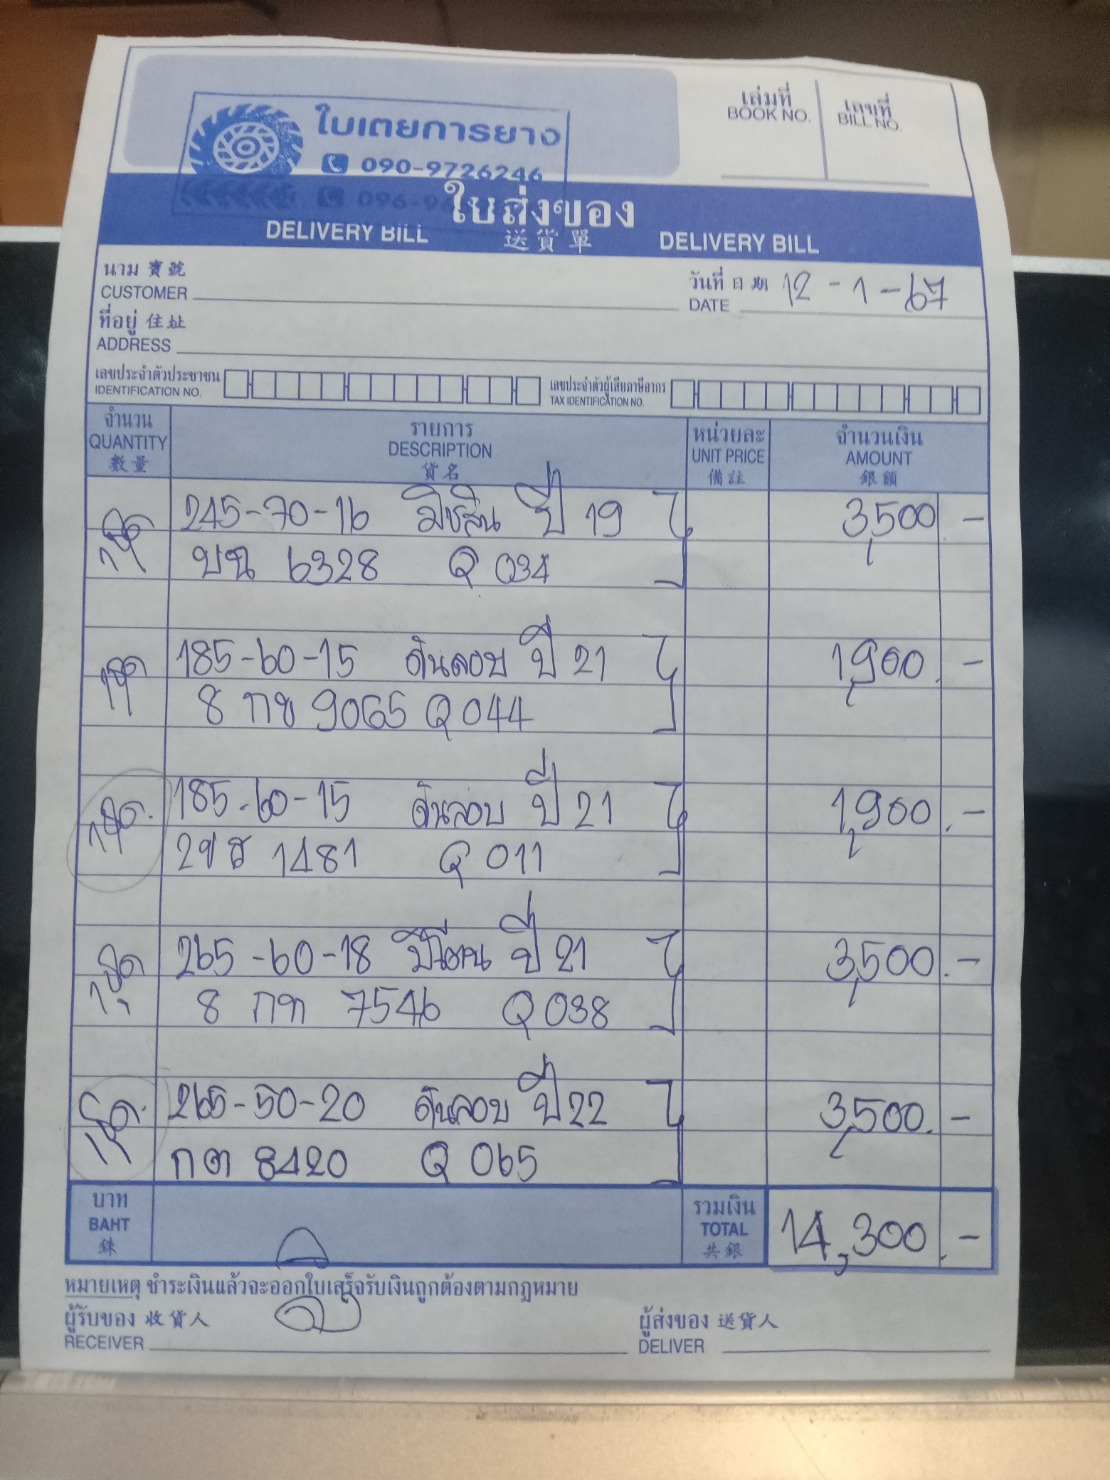 ใบเตยการยาง
090-9726246
096-9
ใบส่งของ
DELIVERY BILL 送貨單 DELIVERY BILL
เล่มที่ เลขที่
BOOK NO. BILL NO.
นาม 寶號
CUSTOMER
วันที่ 日期 12-1-67
DATE
ที่อยู่ 住址
ADDRESS
เลขประจำตัวประชาชน เลขประจำตัวผู้เสียภาษีอากร
IDENTIFICATION NO. TAX IDENTIFICATION NO.
จำนวน รายการ หน่วยละ จำนวนเงิน
QUANTITY DESCRIPTION UNIT PRICE AMOUNT
數量 貨名 備註 銀額
245-70-16 มิชลิน ปี 19 3,500 -
บน 6328 Q 034
185-60-15 ดันลอป ปี 21 1,900.-
8 กข 9065 Q 044
185-60-15 ดันลอป ปี 21 1,900.-
1481 Q 011
265-60-18 ปี 21 3,500.-
8 กท 7546 Q 038
265-50-20 ดันลอป ปี 22 3,500.-
กต 8420 Q 065
บาท รวมเงิน
BAHT TOTAL 14,300.-
銖 共銀
หมายเหตุ ชำระเงินแล้วจะออกใบเสร็จรับเงินถูกต้องตามกฎหมาย
ผู้รับของ 收貨人 ผู้ส่งของ 送貨人
RECEIVER DELIVER